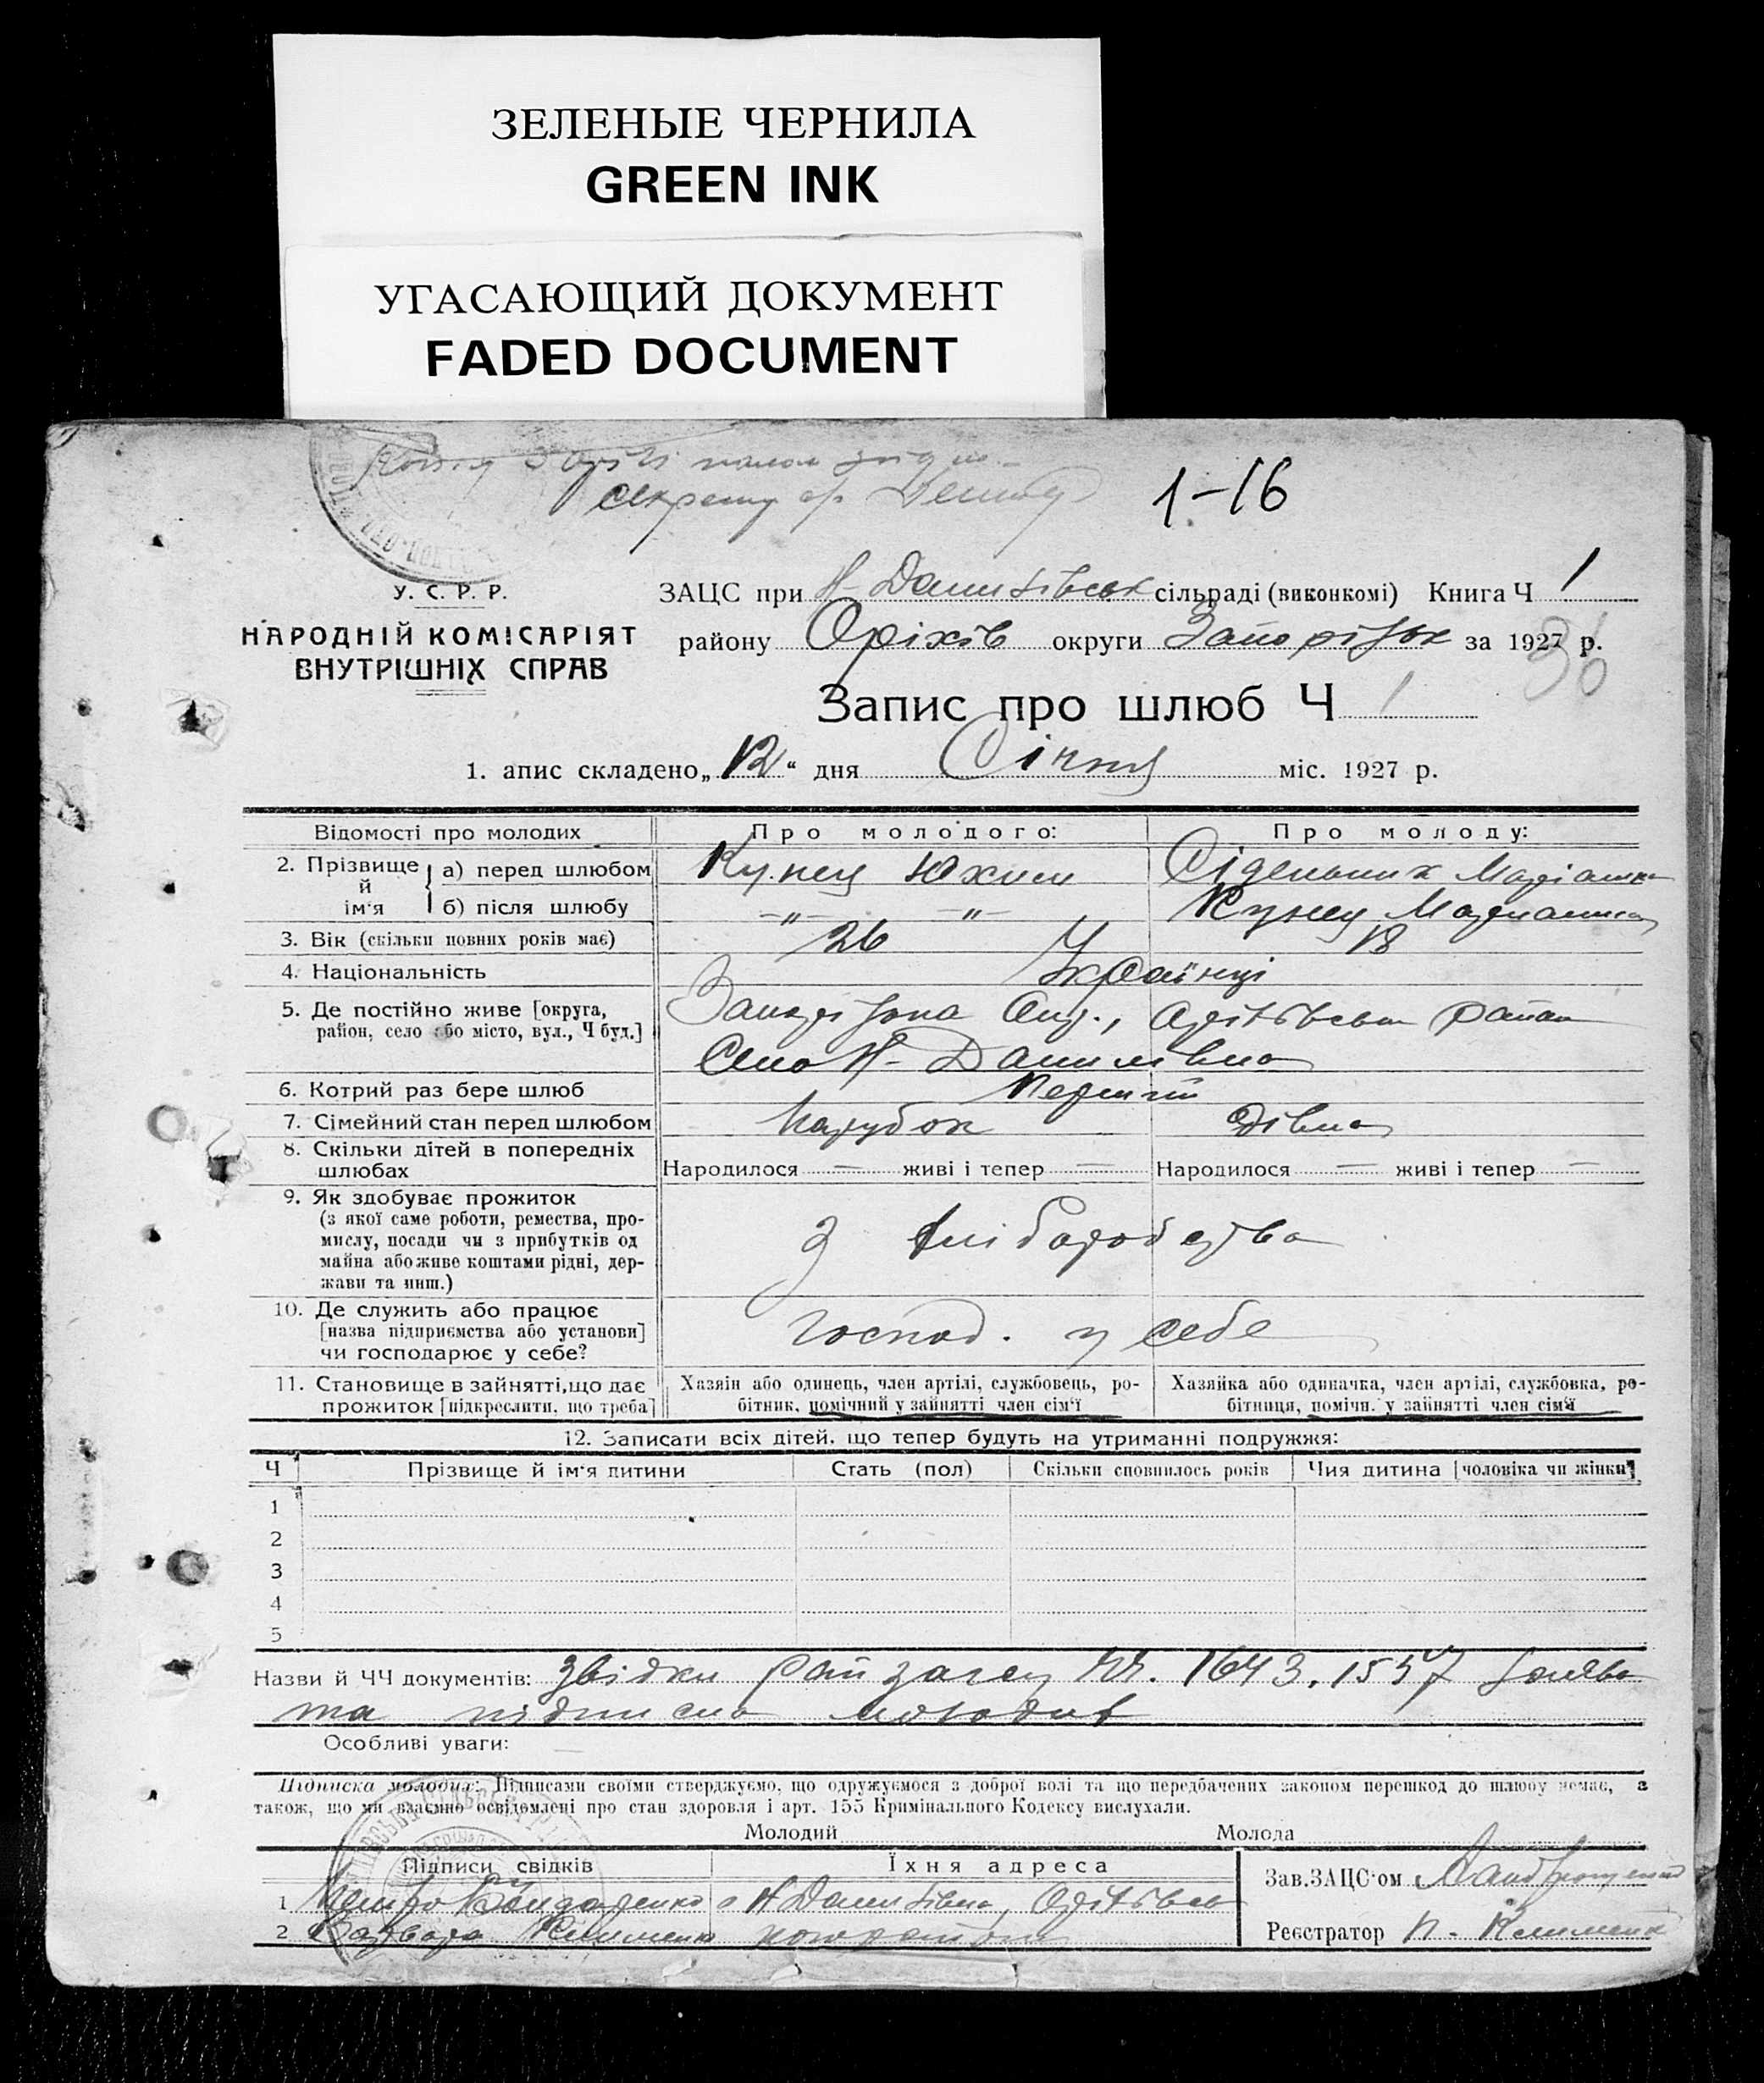 ЗЕЛЕНЫЕ ЧЕРНИЛА
GREEN INK
УГАСАЮЩИЙ ДОКУМЕНТ
FADED DOCUMENT
1-16
У. С. Р. Р.
НАРОДНІЙ КОМІСАРІЯТ
ВНУТРІШНІХ СПРАВ
ЗАЦС при Н-Данилівськ сільраді (виконкомі) Книга Ч 1
району Оріхів округи Запоріжж за 1927 р.
36
Запис про шлюб Ч 1
1. апис складено „12“ дня Січня міс. 1927 р.
Відомості про молодих Про молодого: Про молоду:
2. Прізвище й ім'я а) перед шлюбом Купец Юхим Сідельник Маріамна
б) після шлюбу -"- -"- Купец
3. Вік (скільки повних років має) 26 18
4. Національність Українці
5. Де постійно живе [округа, район, село або місто, вул., Ч буд.]
Село Н-Данилівка
6. Котрий раз бере шлюб Перший
7. Сімейний стан перед шлюбом Парубок Дівка
8. Скільки дітей в попередніх шлюбах Народилося — живі і тепер — Народилося — живі і тепер —
9. Як здобуває прожиток
(з якої саме роботи, ремества, про-
мислу, посади чи з прибутків од
майна або живе коштами рідні, дер-
жави та инш.)
З хліборобства
10. Де служить або працює
[назва підприємства або установи]
чи господарює у себе?
господ. у себе
11. Становище в зайнятті, що дає
прожиток [підкреслити, що треба]
Хазяїн або одинець, член артілі, службовець, ро-
бітник, помічний у зайнятті член сім'ї
Хазяйка або одиначка, член артілі, службовка, ро-
бітниця, помічн. у зайнятті член сім'ї
12. Записати всіх дітей, що тепер будуть на утриманні подружжя:
Ч Прізвище й ім'я дитини Стать (пол) Скільки сповнилось років Чия дитина [чоловіка чи жінки]
1
2
3
4
5
Назви й ЧЧ документів: звідки 1643.1557 заява
та підписка молодих
Особливі уваги: —
Підписка молодих: Підписами своїми стверджуємо, що одружуємося з доброї волі та що передбачених законом перешкод до шлюбу немає, а
також, що ми взаємно освідомлені про стан здоров'я і арт. 155 Кримінального Кодексу вислухали.
Молодий Молода
Підписи свідків Їхня адреса
1 Бондаренко Н Данилівка, Оріхівськ
2 Варвара Клименко
Зав. ЗАЦС'ом
Реєстратор П. Клименко